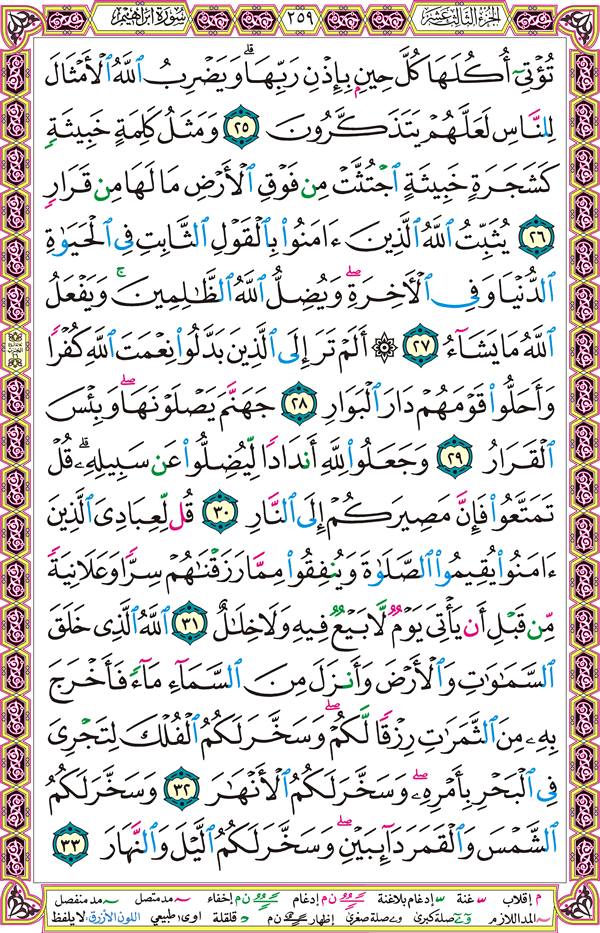 الجزء الثالث عشر ٢٥٩ سورة إبراهيم
تُؤْتِىٓ أُكُلَهَا كُلَّ حِينٍۭ بِإِذْنِ رَبِّهَا ۗ وَيَضْرِبُ ٱللَّهُ ٱلْأَمْثَالَ
لِلنَّاسِ لَعَلَّهُمْ يَتَذَكَّرُونَ ٢٥ وَمَثَلُ كَلِمَةٍ خَبِيثَةٍ
كَشَجَرَةٍ خَبِيثَةٍ ٱجْتُثَّتْ مِن فَوْقِ ٱلْأَرْضِ مَا لَهَا مِن قَرَارٍ
٢٦ يُثَبِّتُ ٱللَّهُ ٱلَّذِينَ ءَامَنُوا۟ بِٱلْقَوْلِ ٱلثَّابِتِ فِى ٱلْحَيَوٰةِ
ٱلدُّنْيَا وَفِى ٱلْءَاخِرَةِ ۖ وَيُضِلُّ ٱللَّهُ ٱلظَّـٰلِمِينَ ۚ وَيَفْعَلُ
ٱللَّهُ مَا يَشَآءُ ٢٧ ۞ أَلَمْ تَرَ إِلَى ٱلَّذِينَ بَدَّلُوا۟ نِعْمَتَ ٱللَّهِ كُفْرًا
وَأَحَلُّوا۟ قَوْمَهُمْ دَارَ ٱلْبَوَارِ ٢٨ جَهَنَّمَ يَصْلَوْنَهَا ۖ وَبِئْسَ
ٱلْقَرَارُ ٢٩ وَجَعَلُوا۟ لِلَّهِ أَندَادًا لِّيُضِلُّوا۟ عَن سَبِيلِهِۦ ۗ قُلْ
تَمَتَّعُوا۟ فَإِنَّ مَصِيرَكُمْ إِلَى ٱلنَّارِ ٣٠ قُل لِّعِبَادِىَ ٱلَّذِينَ
ءَامَنُوا۟ يُقِيمُوا۟ ٱلصَّلَوٰةَ وَيُنفِقُوا۟ مِمَّا رَزَقْنَـٰهُمْ سِرًّا وَعَلَانِيَةً
مِّن قَبْلِ أَن يَأْتِىَ يَوْمٌ لَّا بَيْعٌ فِيهِ وَلَا خِلَـٰلٌ ٣١ ٱللَّهُ ٱلَّذِى خَلَقَ
ٱلسَّمَـٰوَٰتِ وَٱلْأَرْضَ وَأَنزَلَ مِنَ ٱلسَّمَآءِ مَآءً فَأَخْرَجَ
بِهِۦ مِنَ ٱلثَّمَرَٰتِ رِزْقًا لَّكُمْ ۖ وَسَخَّرَ لَكُمُ ٱلْفُلْكَ لِتَجْرِىَ
فِى ٱلْبَحْرِ بِأَمْرِهِۦ ۖ وَسَخَّرَ لَكُمُ ٱلْأَنْهَـٰرَ ٣٢ وَسَخَّرَ لَكُمُ
ٱلشَّمْسَ وَٱلْقَمَرَ دَآئِبَيْنِ ۖ وَسَخَّرَ لَكُمُ ٱلَّيْلَ وَٱلنَّهَارَ ٣٣
م إقلاب غنة إدغام بلاغنة ن م إدغام ن م إخفاء مد متصل مد منفصل
المد اللازم صلة كبرى صلة صغرى إظهار ن م قلقلة اوى طبيعي اللون الأزرق: لا يلفظ